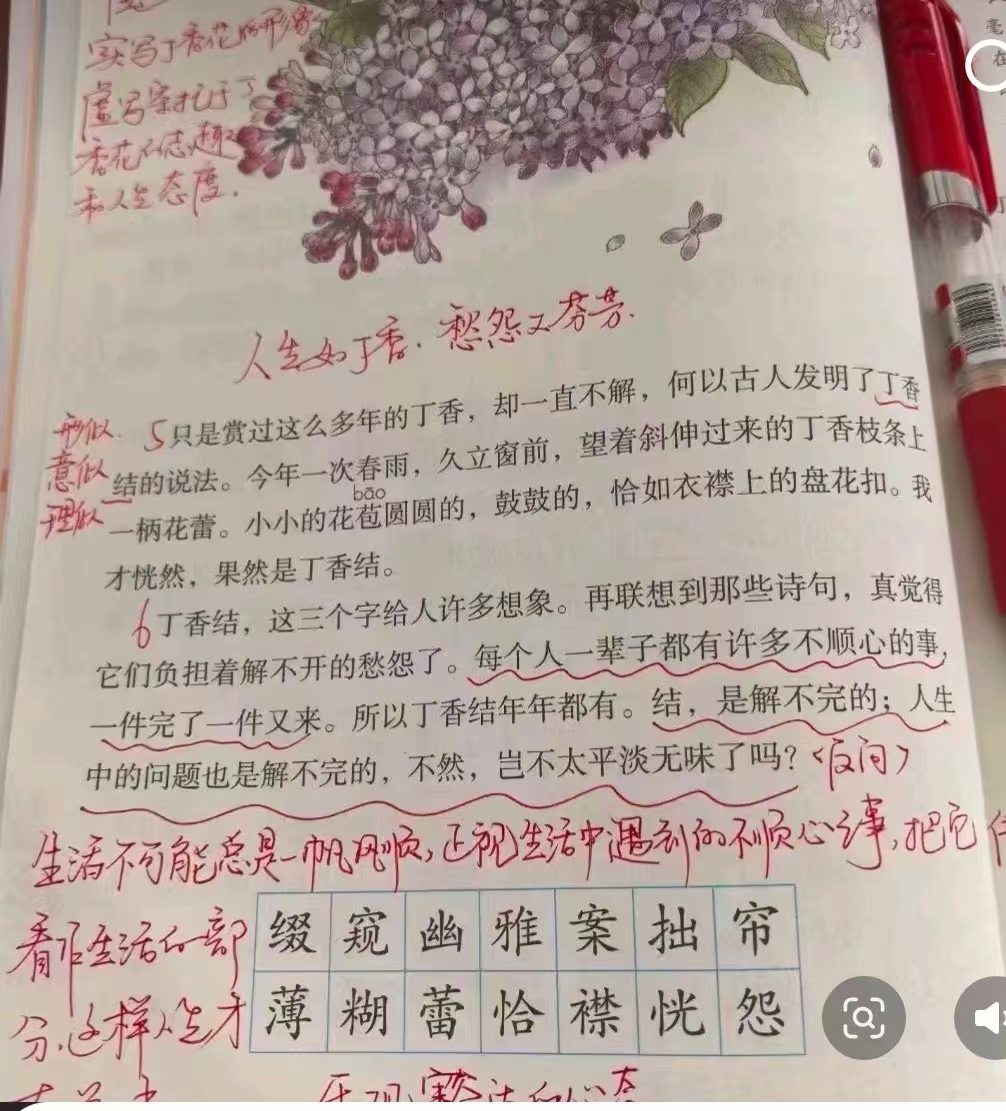 实写丁香花的形象
虚写寄托于丁
香花的志趣
和人生态度.
人生如丁香.愁怨又芬芳.
形似.
意似
理似
5只是赏过这么多年的丁香，却一直不解，何以古人发明了丁香
结的说法。今年一次春雨，久立窗前，望着斜伸过来的丁香枝条上
bāo
一柄花蕾。小小的花苞圆圆的，鼓鼓的，恰如衣襟上的盘花扣。我
才恍然，果然是丁香结。
6丁香结，这三个字给人许多想象。再联想到那些诗句，真觉得
它们负担着解不开的愁怨了。每个人一辈子都有许多不顺心的事，
一件完了一件又来。所以丁香结年年都有。结，是解不完的；人生
中的问题也是解不完的，不然，岂不太平淡无味了吗？（反问）
生活不可能总是一帆风顺,正视生活中遇到的不顺心之事,把它
看作生活的一部
分.这样人生才
缀 窥 幽 雅 案 拙 帘
薄 糊 蕾 恰 襟 恍 怨